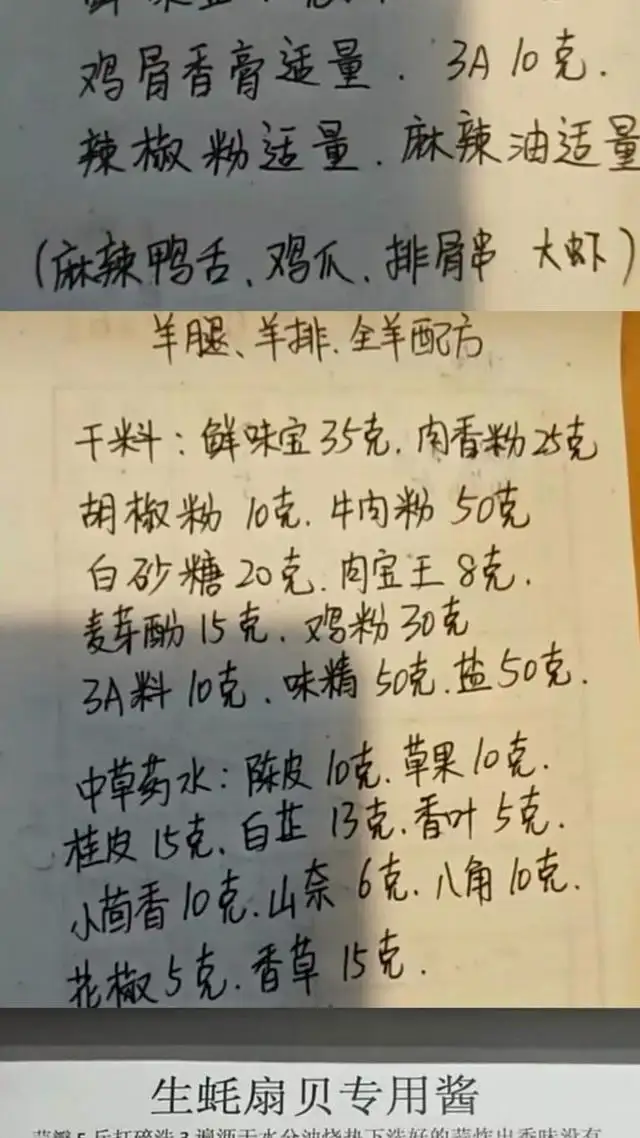 鸡骨香膏适量. 3A 10克.
辣椒粉适量. 麻辣油适量
(麻辣鸭舌、鸡爪、排骨串 大虾)
羊腿、羊排、全羊配方
干料: 鲜味宝35克. 肉香粉25克
胡椒粉 10克. 牛肉粉 50克
白砂糖 20克. 肉宝王 8克.
麦芽酚 15克、鸡粉 30克
3A料 10克、味精 50克. 盐50克.
中草药水: 陈皮 10克. 草果 10克.
桂皮 15克、白芷 13克. 香叶 5克.
小茴香 10克. 山奈 6克. 八角 10克.
花椒 5克. 香草 15克.
生蚝扇贝专用酱